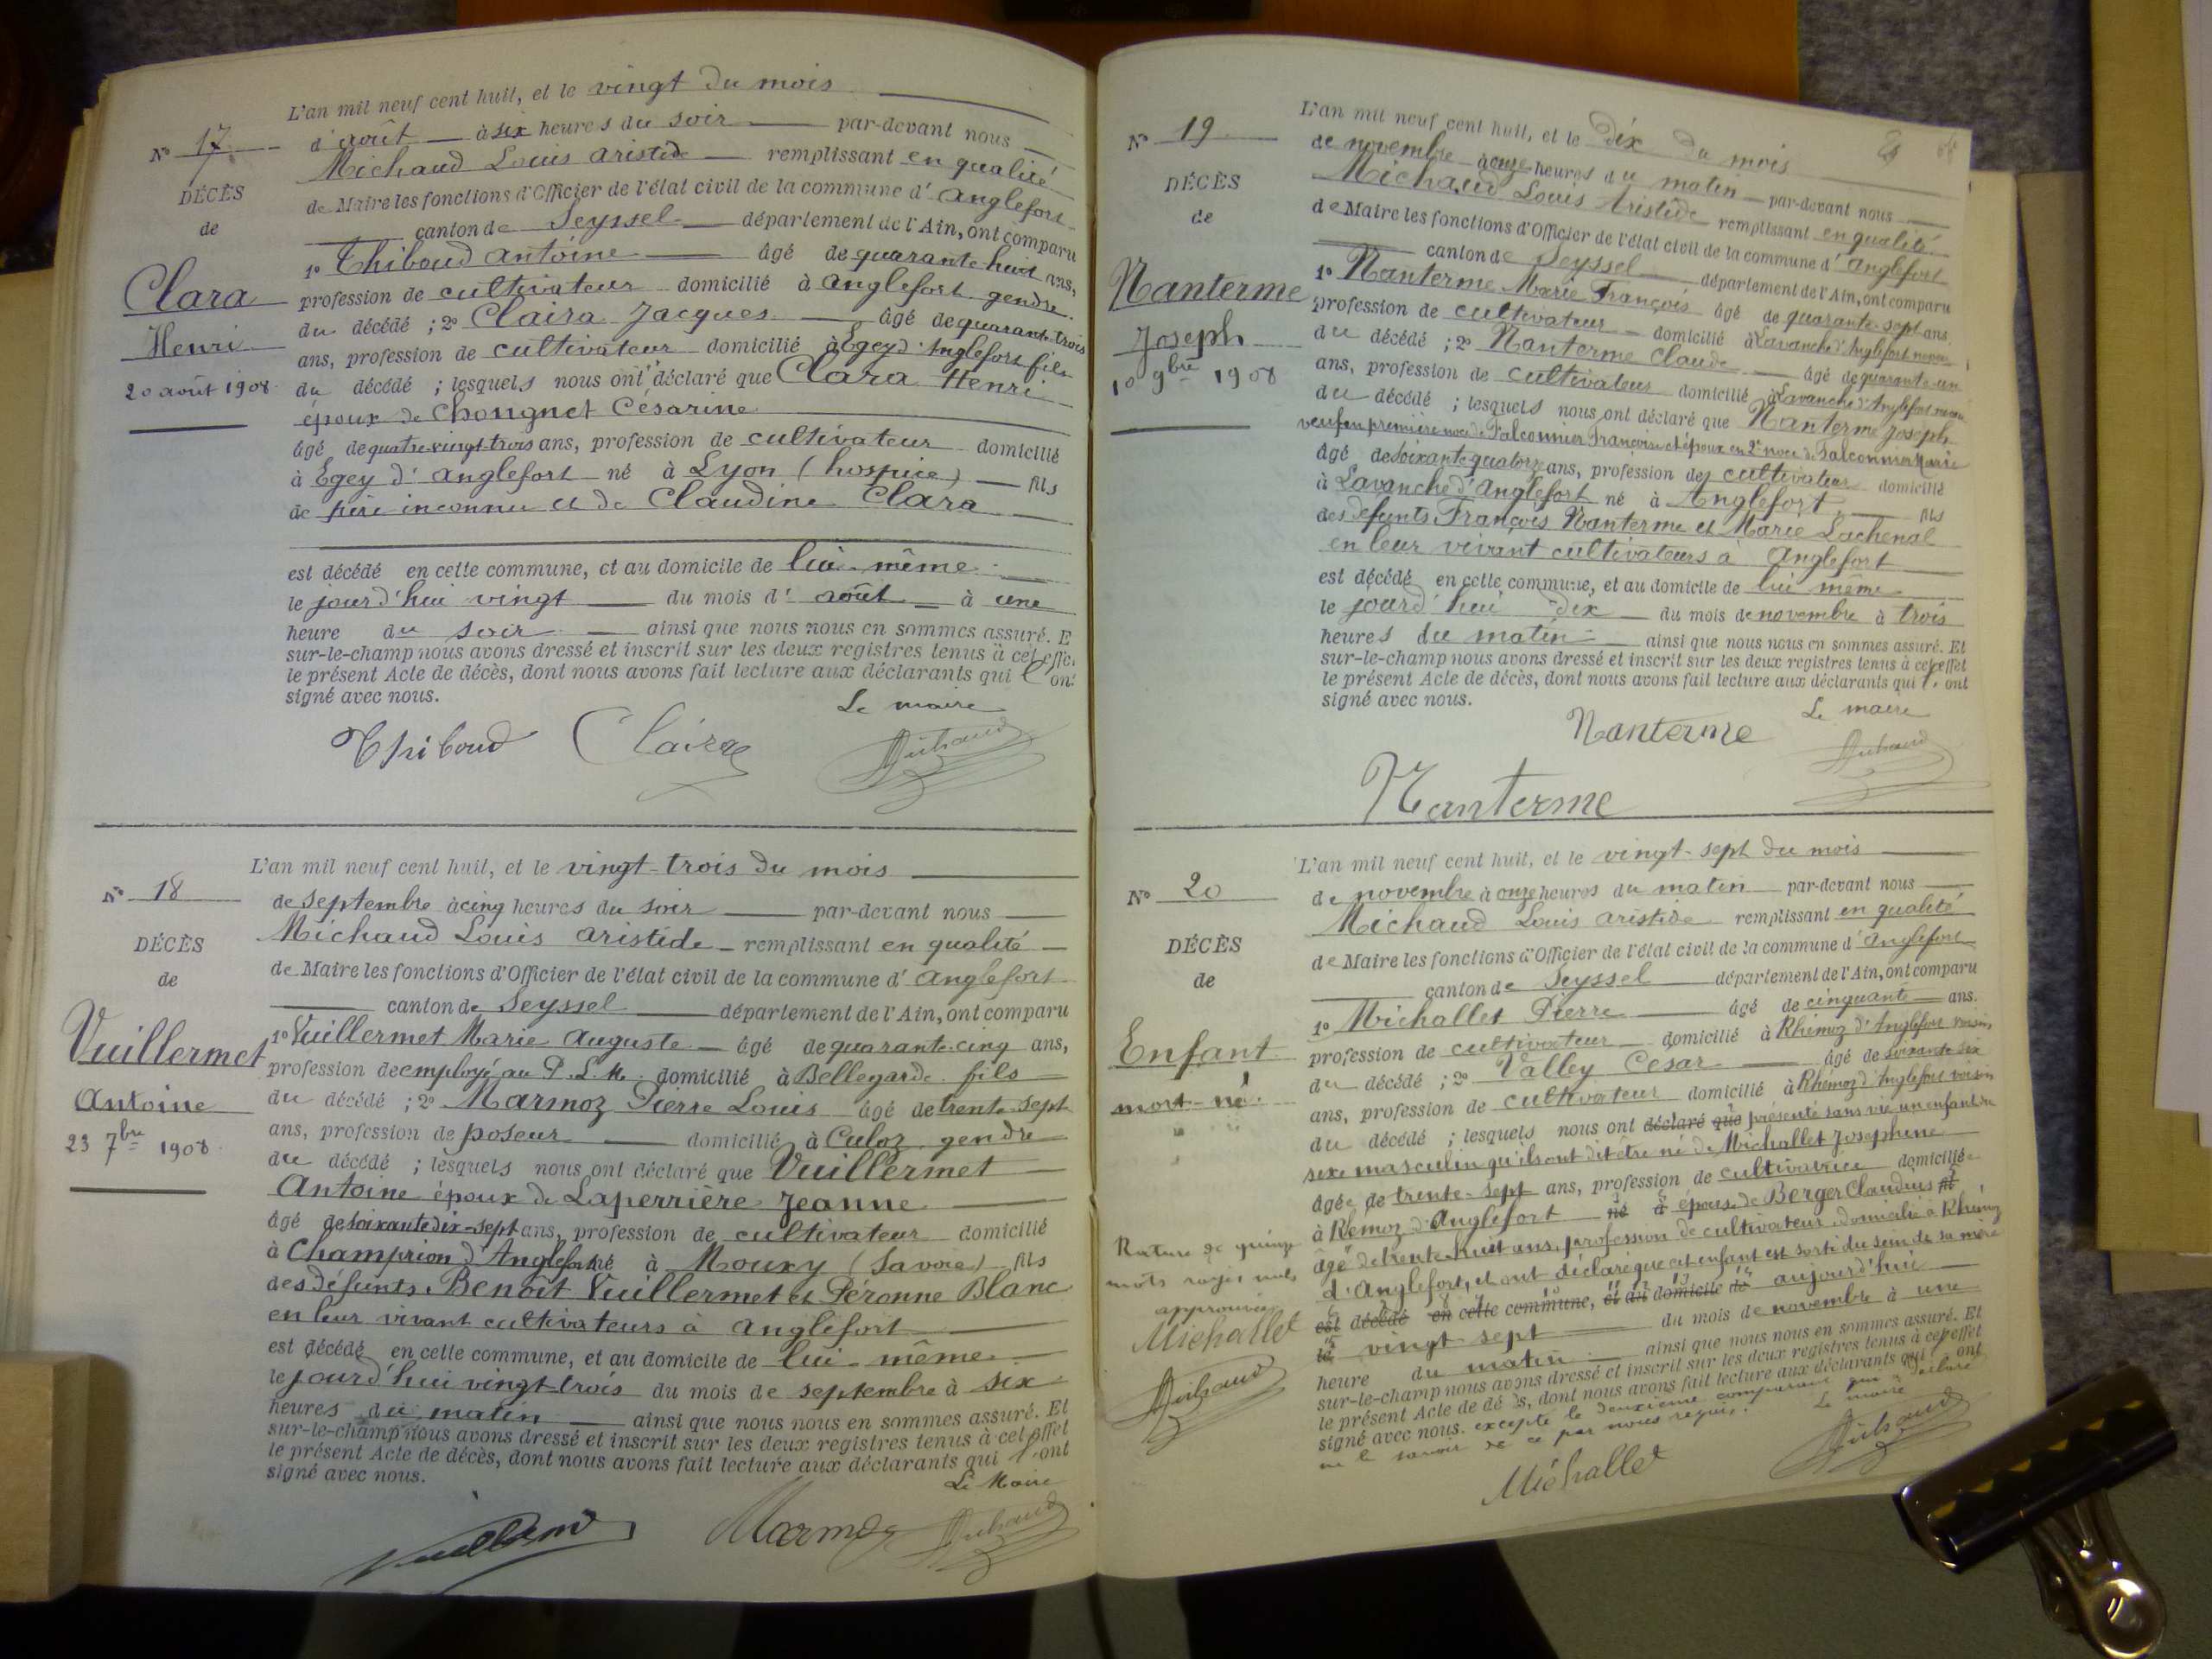 L'an mil neuf cent huit, et le vingt du mois
N° 17
d'août à six heures du soir par-devant nous
Michaud Louis Aristide remplissant en qualité
DÉCÈS
de Maire les fonctions d'Officier de l'état civil de la commune d'Anglefort
de
canton de Seyssel département de l'Ain, ont comparu
1° Thiboud Antoine âgé de quarante huit ans,
Clara
profession de cultivateur domicilié à Anglefort gendre
du décédé ; 2° Claira Jacques âgé de quarante trois
Henri
ans, profession de cultivateur domicilié à Egey d'Anglefort fils
20 août 1908
du décédé ; lesquels nous ont déclaré que Clara Henri
époux de Chongnet Césarine
âgé de quatre-vingt-trois ans, profession de cultivateur domicilié
à Egey d'Anglefort né à Lyon (hospice) fils
de père inconnu et de Claudine Clara
est décédé en cette commune, et au domicile de lui-même
le jourd'hui vingt du mois d'août à une
heure du soir ainsi que nous nous en sommes assuré. E
sur-le-champ nous avons dressé et inscrit sur les deux registres tenus à cet effe
le présent Acte de décès, dont nous avons fait lecture aux déclarants qui l'ont
signé avec nous.
Le maire
Thiboud Claira Michaud
L'an mil neuf cent huit, et le vingt-trois du mois
N° 18
de septembre à cinq heures du soir par-devant nous
Michaud Louis Aristide remplissant en qualité
DÉCÈS
de Maire les fonctions d'Officier de l'état civil de la commune d'Anglefort
de
canton de Seyssel département de l'Ain, ont comparu
1° Vuillermet Marie Auguste âgé de quarante-cinq ans,
Vuillermet
profession de employé au P.L.M. domicilié à Bellegarde fils
Antoine
du décédé ; 2° Marmoz Pierre Louis âgé de trente-sept
23 7bre 1908
ans, profession de poseur domicilié à Culoz gendre
du décédé ; lesquels nous ont déclaré que Vuillermet
Antoine époux de Laperrière Jeanne
âgé de soixante dix-sept ans, profession de cultivateur domicilié
à Champrion d'Anglefort né à Mouxy (Savoie) fils
des défunts Benoît Vuillermet et Péronne Blanc
en leur vivant cultivateurs à Anglefort
est décédé en cette commune, et au domicile de lui-même
le jourd'hui vingt-trois du mois de septembre à six
heures du matin ainsi que nous nous en sommes assuré. Et
sur-le-champ nous avons dressé et inscrit sur les deux registres tenus à cet effet
le présent Acte de décès, dont nous avons fait lecture aux déclarants qui l'ont
signé avec nous.
Le Maire
Marmoz Michaud
L'an mil neuf cent huit, et le dix du mois
N° 19
de novembre à onze heures du matin par-devant nous
Michaud Louis Aristide remplissant en qualité
DÉCÈS
de Maire les fonctions d'Officier de l'état civil de la commune d'Anglefort
de
canton de Seyssel département de l'Ain, ont comparu
1° Nanterme Marie François âgé de quarante-sept ans,
Nanterme
profession de cultivateur domicilié à Lavanche d'Anglefort neveu
du décédé ; 2° Nanterme Claude âgé de quarante-un
Joseph
ans, profession de cultivateur domicilié à Lavanche d'Anglefort neveu
10 9bre 1908
du décédé ; lesquels nous ont déclaré que Nanterme Joseph
veuf en première noce de Falconnier Françoise et époux en 2e noce de Falconnier Marie
âgé de soixante quatorze ans, profession de cultivateur domicilié
à Lavanche d'Anglefort né à Anglefort fils
des défunts François Nanterme et Marie Lachenal
en leur vivant cultivateurs à Anglefort
est décédé en cette commune, et au domicile de lui même
le jourd'hui dix du mois de novembre à trois
heures du matin ainsi que nous nous en sommes assuré. Et
sur-le-champ nous avons dressé et inscrit sur les deux registres tenus à cet effet
le présent Acte de décès, dont nous avons fait lecture aux déclarants qui l'ont
signé avec nous.
Le maire
Nanterme Michaud
Nanterme
L'an mil neuf cent huit, et le vingt-sept du mois
N° 20
de novembre à onze heures du matin par-devant nous
Michaud Louis Aristide remplissant en qualité
DÉCÈS
de Maire les fonctions d'Officier de l'état civil de la commune d'Anglefort
de
canton de Seyssel département de l'Ain, ont comparu
1° Michallet Pierre âgé de cinquante ans.
Enfant
profession de cultivateur domicilié à Rhémoz d'Anglefort voisin
du décédé ; 2° Valley César âgé de soixante six
mort-né
ans, profession de cultivateur domicilié à Rhémoz d'Anglefort voisin
du décédé ; lesquels nous ont déclaré que présenté sans vie un enfant du
sexe masculin qu'ils ont dit être né de Michallet Josephine
âgée de trente-sept ans, profession de cultivatrice domiciliée
à Rémoz d'Anglefort né à épouse de Berger Claudius fil
âgé de trente-huit ans, profession de cultivateur domicilié à Rhémoz
d'Anglefort, et ont déclaré que cet enfant est sorti du sein de sa mère
est décédé en cette commune, et au domicile de aujourd'hui
le vingt sept du mois de novembre à une
heure du matin ainsi que nous nous en sommes assuré. Et
sur-le-champ nous avons dressé et inscrit sur les deux registres tenus à cet effet
le présent Acte de décès, dont nous avons fait lecture aux déclarants qui l'ont
signé avec nous. excepté le deuxième comparant qui a déclaré
ne le savoir de ce par nous requis.
Le maire
Rature de quinze
mots rayés nuls
approuvée
Michallet
Michaud
Michallet Michaud